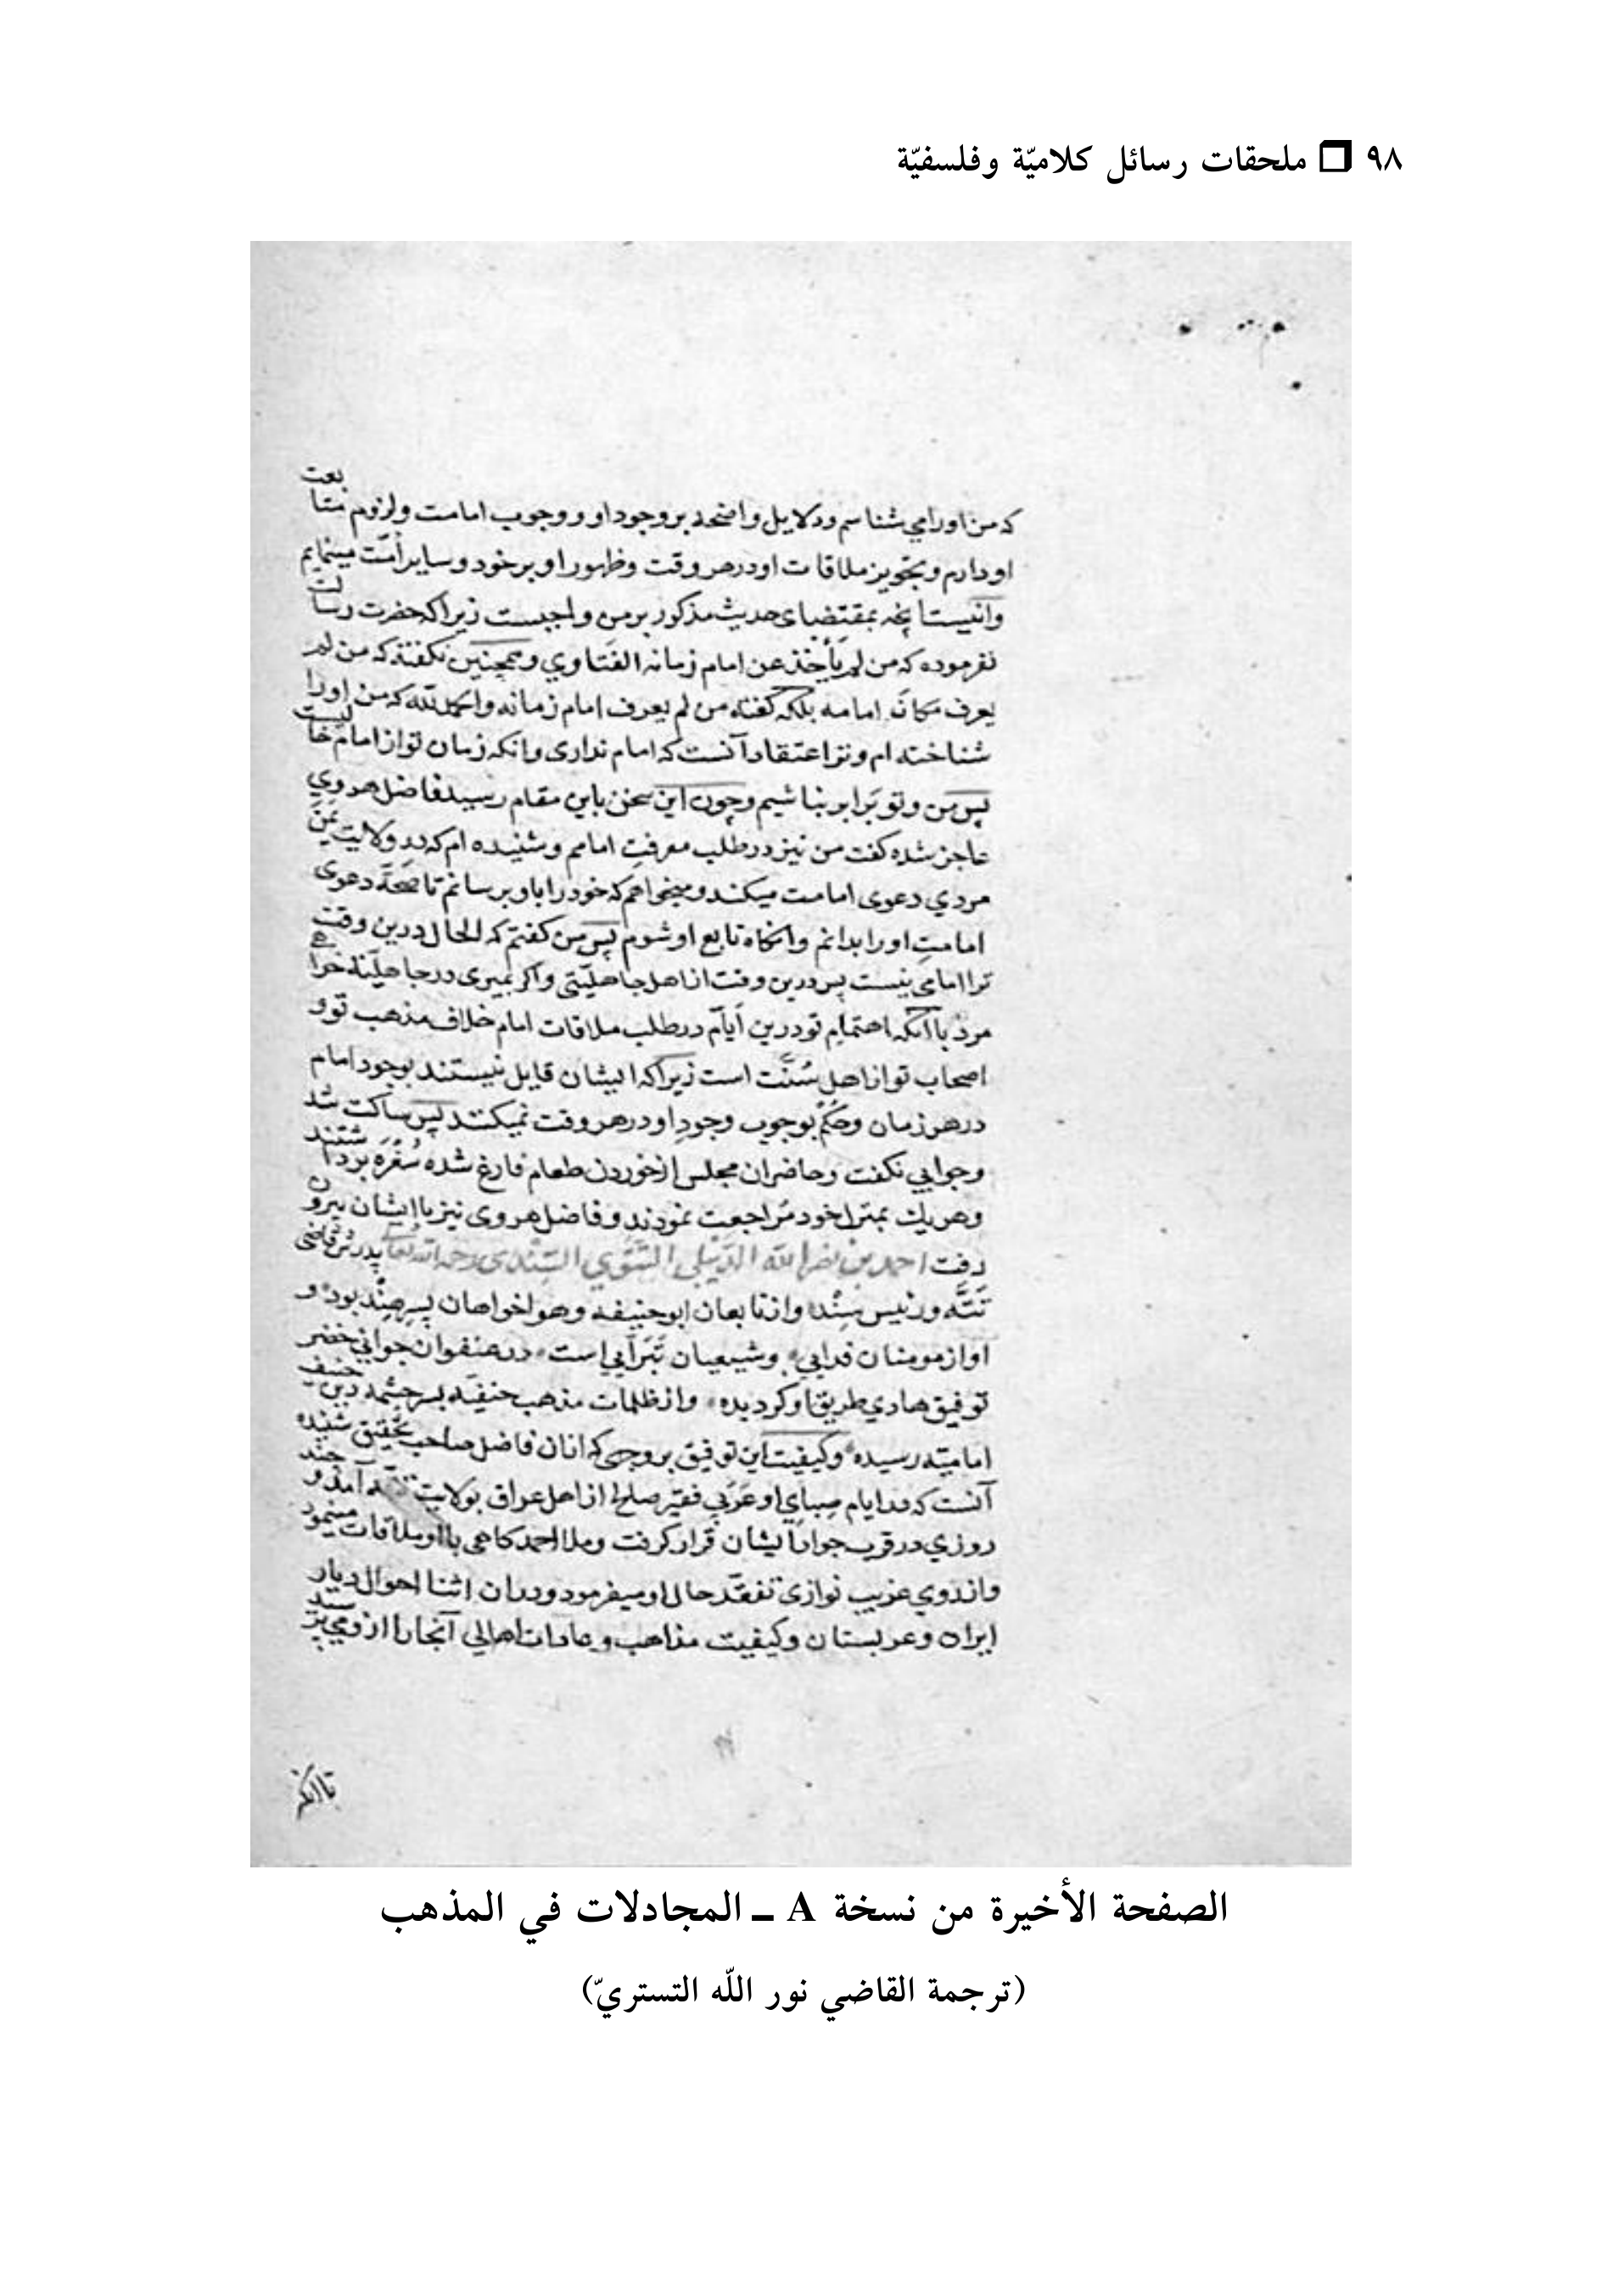 ٩٨ ❒ ملحقات رسائل كلاميّة وفلسفيّة
كه من اورا می شناسم ودلایل واضحه بر وجود او ووجوب امامت ولزوم متابعت
او دارم وتجویز ملاقات او در هر وقت وظهور او بر خود وسایر امّت مینمایم
وانیست آنچه بمقتضای حدیث مذکور بر من واجبست زیرا که حضرت رسالت
نفرموده که من لم یأخذ عن امام زمانه الفتاوي وهمچنین نکفته که من لم
یعرف مکان امامه بلکه کفته من لم یعرف امام زمانه والحمد لله که من اورا
شناخته ام وترا اعتقاد آنست که امام نداری وانکه زمان تو از امام خالیست
پس من وتو برابر نباشیم وچون این سخن باین مقام رسید فاضل هروي
عاجز شده کفت من نیز در طلب معرفت امامم وشنیده ام که در ولایت یمن
مردي دعوی امامت میکند ومیخواهم که خود را باو برسانم تا صحّة دعوی
امامت او را بدانم وانکاه تابع او شوم پس من کفتم که الحال درین وقت
ترا امامی نیست پس درین وقت از اهل جاهلیّتی واکر بمیری در جاهلیّة خواهی
مرد با آنکه اهتمام تو درین ایّام در طلب ملاقات امام خلاف مذهب تو و
اصحاب تو از اهل سُنّت است زیرا که ایشان قایل نیستند بوجود امام
در هر زمان وحکم بوجوب وجود او در هر وقت نمیکنند پس ساکت شد
وجوابي نکفت وحاضران مجلس از خوردن طعام فارغ شده سُفره برداشتند
وهر یك بمنزل خود مراجعت نمودند وفاضل هروی نیز با ایشان بیرون
رفت احمد بن نصر الله الدّیبلي التَّتَوي السِّندی رحمه الله تعالی پدرش قاضی
تَتَّه ورئیس سِنْد واز تابعان ابو حنیفه وهواخواهان پسر هند بود و
او از مومنان فدایی وشیعیان تَبَرّایي است در عنفوان جواني خضر
توفیق هادي طریق او کردیده واز ظلمات مذهب حنفیّه بسرچشمه دین حنیف
امامیّه رسیده وکیفیت این توفیق بر وجهی که از ان فاضل صاحب تحقیق شنیده
آنست که در ایام صِبای او عَرَبي فقیر صلح از اهل عراق بولایت تتّه آمد و چند
روزي در قرب جوار ایشان قرار کرفت وملا احمد کاهی با او ملاقات مینمود
واز روي غریب نوازی تفقّد حال او میفرمود ودران اثنا احوال دیار
ایران وعربستان وکیفیت مذاهب وعادات اهالي آنجا را از وی می پرسید
تا انکه
الصفحة الأخيرة من نسخة A ــ المجادلات في المذهب
(ترجمة القاضي نور اللّه التستريّ)